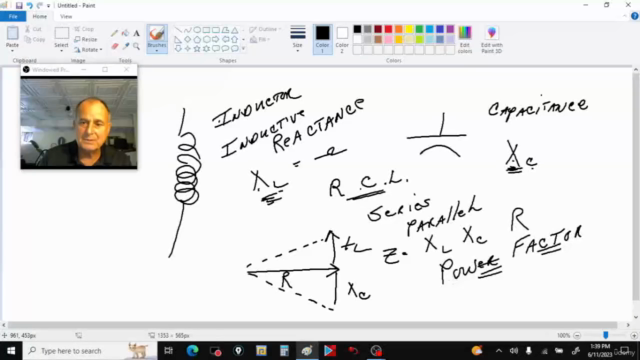 Untitled - Paint
File Home View
Paste
Cut
Copy
Clipboard
Select
Crop
Resize
Rotate
Image
Tools
Brushes
Shapes
Outline
Fill
Size
Color 1
Color 2
Colors
Edit colors
Edit with Paint 3D
INDUCTOR
INDUCTIVE
REACTANCE
XL =
CAPACITANCE
XC
R.C.L.
SERIES
PARALLEL
R
XL
Z= XL XC
POWER FACTOR
R
XC
961, 453px
1353 × 565px
100%
Type here to search
1:39 PM
6/11/2023